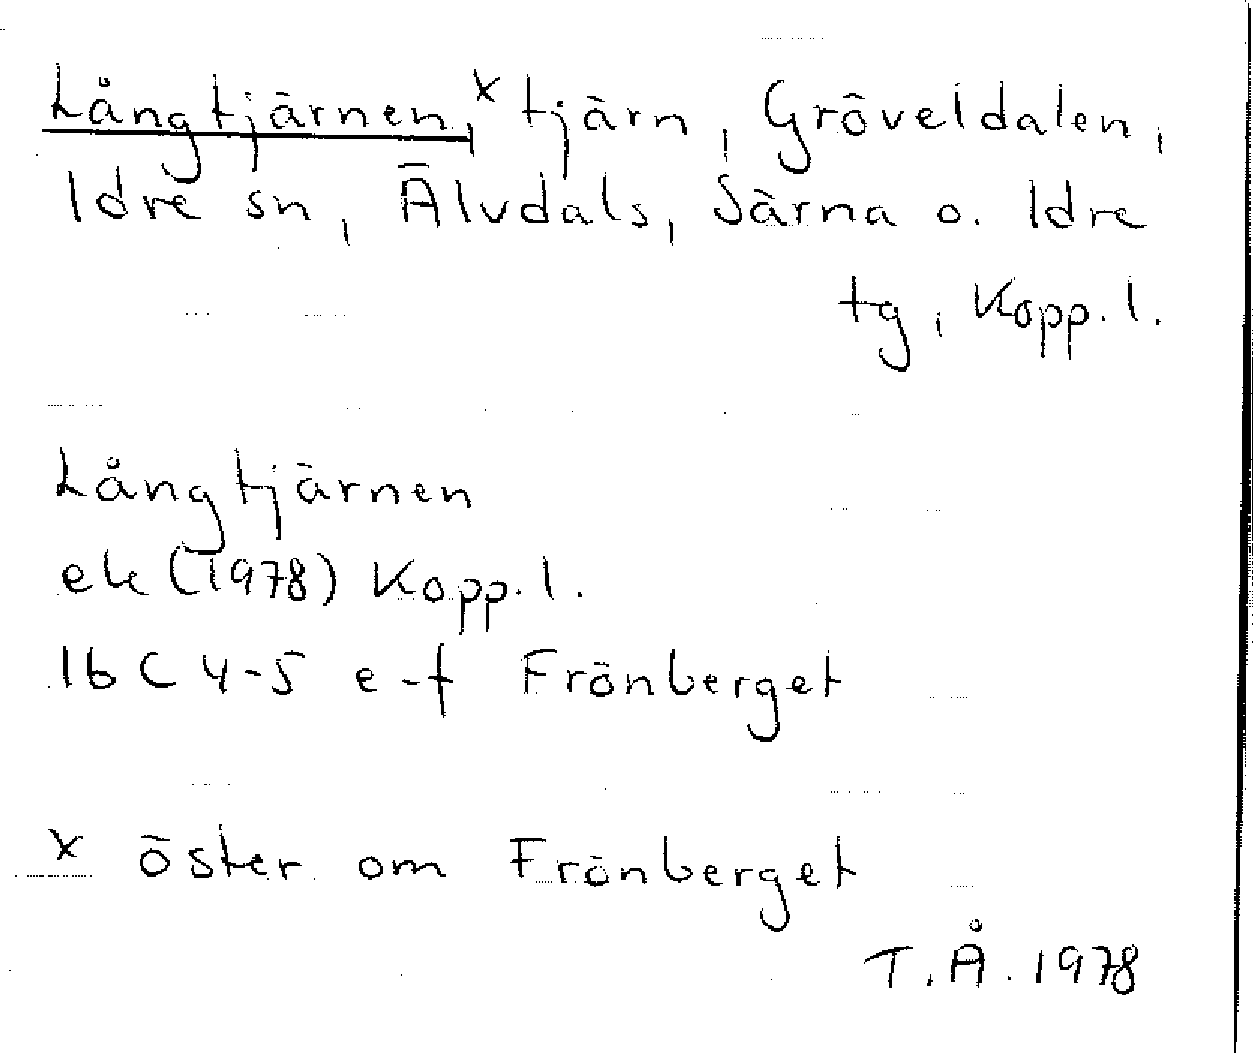 Långtjärnen,ˣ tjärn, Gröveldalen,
Idre sn, Älvdals, Särna o. Idre
tg, Kopp. l.
Långtjärnen
ek (1978) Kopp. l.
16 C 4-5 e-f Frönberget
x öster om Frönberget
T. Å. 1978